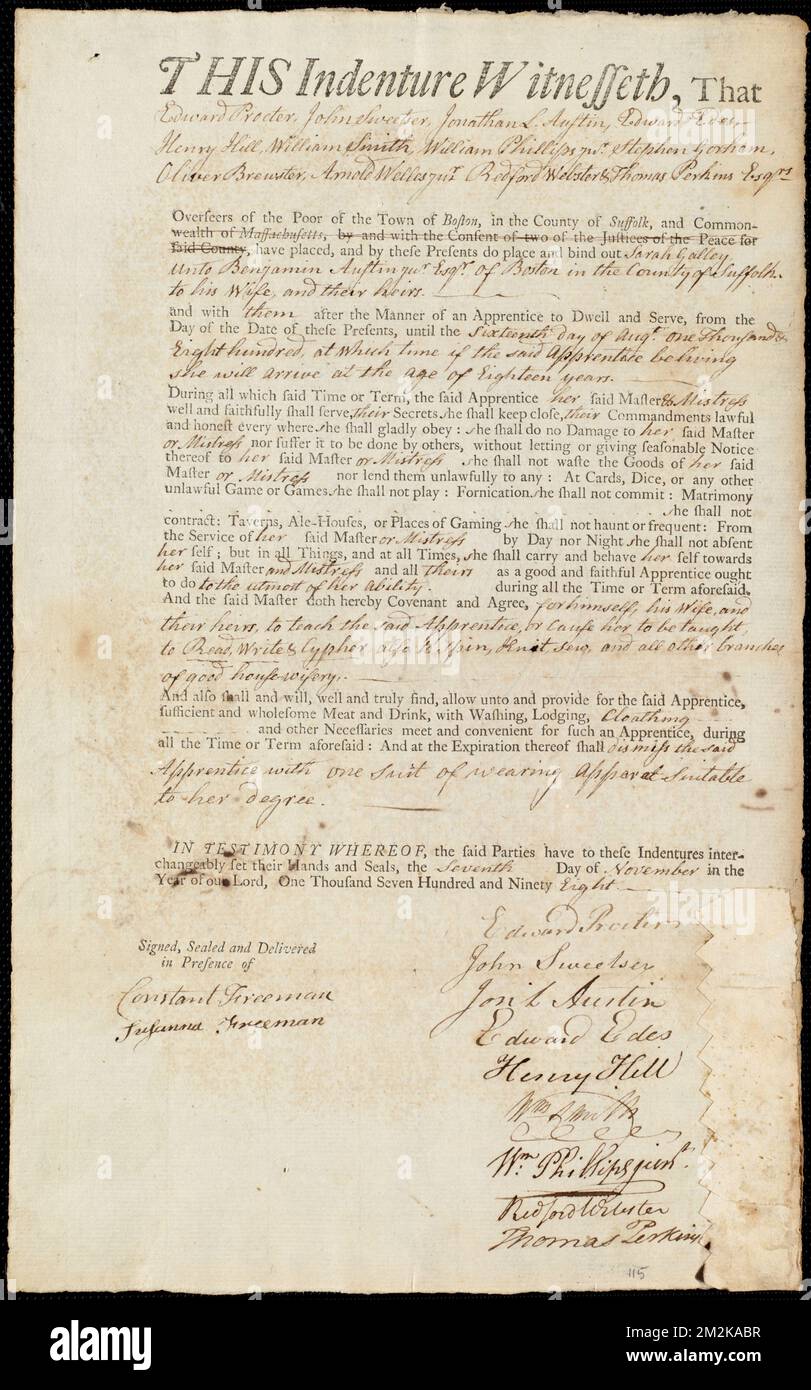 THIS Indenture Witnesseth, That
Edward Procter, John Sweetser, Jonathan L. Austin, Edward Edes,
Henry Hill, William Smith, William Phillips junr. Stephen Gorham,
Oliver Brewster, Arnold Welles junr. Redford Webster & Thomas Perkins Esqrs
Overseers of the Poor of the Town of Boston, in the County of Suffolk, and Common-
wealth of Massachusetts, by and with the Consent of two of the Justices of the Peace for
said County, have placed, and by these Presents do place and bind out Sarah Galley
unto Benjamin Austin junr. Esqr. of Boston in the County of Suffolk.
to his Wife, and their heirs.
and with them after the Manner of an Apprentice to Dwell and Serve, from the
Day of the Date of these Presents, until the Sixteenth day of Augt. one Thousand &
Eight hundred, at which time if the said Apprentice be living
she will arrive at the age of Eighteen years.
During all which said Time or Term, the said Apprentice her said Master & Mistress
well and faithfully shall serve, their Secrets she shall keep close, their Commandments lawful
and honest every where she shall gladly obey : she shall do no Damage to her said Master
or Mistress nor suffer it to be done by others, without letting or giving seasonable Notice
thereof to her said Master or Mistress . she shall not waste the Goods of her said
Master or Mistress nor lend them unlawfully to any : At Cards, Dice, or any other
unlawful Game or Games she shall not play : Fornication she shall not commit : Matrimony
she shall not
contract: Taverns, Ale-Houses, or Places of Gaming she shall not haunt or frequent: From
the Service of her said Master or Mistress by Day nor Night she shall not absent
her self ; but in all Things, and at all Times, she shall carry and behave her self towards
her said Master and Mistress and all theirs as a good and faithful Apprentice ought
to do to the utmost of her Ability. during all the Time or Term aforesaid.
And the said Master doth hereby Covenant and Agree, for himself, his Wife, and
their heirs, to teach the said Apprentice, or cause her to be taught,
to Read, Write & Cypher also to Spin, Knit sew, and all other branches
of good housewifery,
And also shall and will, well and truly find, allow unto and provide for the said Apprentice,
sufficient and wholesome Meat and Drink, with Washing, Lodging, Cloathing
and other Necessaries meet and convenient for such an Apprentice, during
all the Time or Term aforesaid : And at the Expiration thereof shall dismiss the said
Apprentice with one suit of wearing Apparel suitable
to her degree.
IN TESTIMONY WHEREOF, the said Parties have to these Indentures inter-
changeably set their Hands and Seals, the Seventh Day of November in the
Year of our Lord, One Thousand Seven Hundred and Ninety Eight
Signed, Sealed and Delivered
in Presence of
Constant Freeman
Susanna Freeman
Edward Procter
John Sweetser
Jon L Austin
Edward Edes
Henry Hill
Wm Smith
Wm. Phillips junr.
Redford Webster
Thomas Perkins
115
alamy
Image ID: 2M2KABR
www.alamy.com